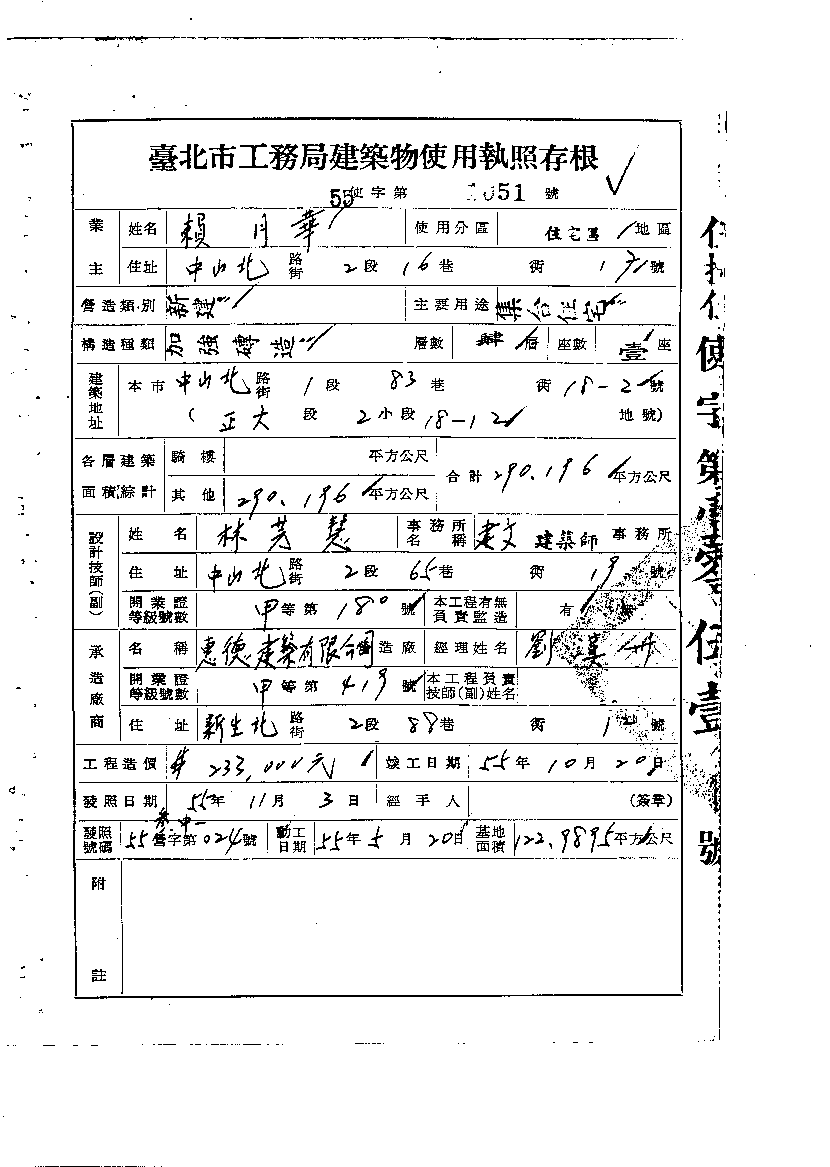 臺北市工務局建築物使用執照存根
55使字第 1051 號
業主 姓名 賴月華 使用分區 住宅區 地區
住址 中山北路街 2段 16巷 衖 號
營造類別 新建 主要用途 集合住宅
構造種類 加強磚造 層數 肆層 座數 壹座
建築地址 本市 中山北路街 1段 83巷 衖 18-2號
(正大段 2小段 18-12 地號)
各層建築面積綜計 騎樓 平方公尺 合計 290.196 平方公尺
其他 290.196 平方公尺
設計技師(副) 姓名 林芳慧 事務所名稱 建文建築師事務所
住址 中山北路街 2段 65巷 衖 19號
開業證等級號數 甲等第 180 號 本工程有無負責監造 有
承造廠商 名稱 惠德建築有限公司 造廠 經理姓名 劉
開業證等級號數 甲等第 419 號 本工程負責技師(副)姓名
住址 新生北路街 2段 88巷 衖 號
工程造價 $ 233,000元 竣工日期 55年 10月 20日
發照日期 55年 11月 3日 經手人 (簽章)
發照號碼 55營字第024號 動工日期 55年 5月 20日 基地面積 122.9895平方公尺
附註
使字第壹零伍壹號